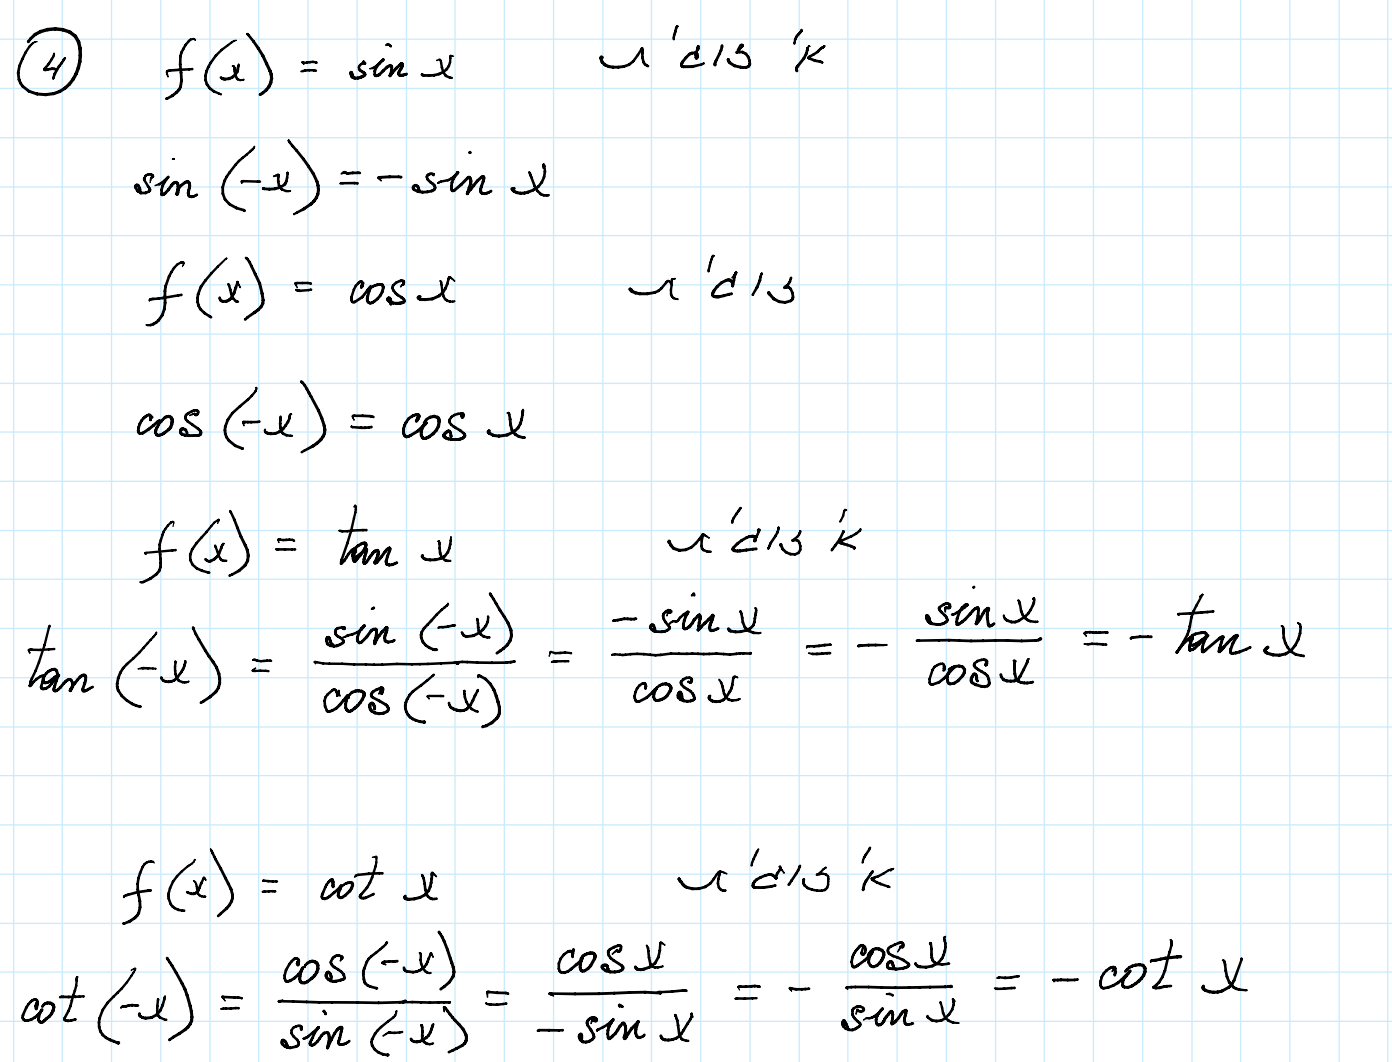 ④ f(x) = sin x אי זוגית
sin (-x) = - sin x
f(x) = cos x זוגית
cos (-x) = cos x
f(x) = tan x אי זוגית
tan (-x) = sin (-x) / cos (-x) = -sin x / cos x = - sin x / cos x = - tan x
f(x) = cot x אי זוגית
cot (-x) = cos (-x) / sin (-x) = cos x / - sin x = - cos x / sin x = - cot x